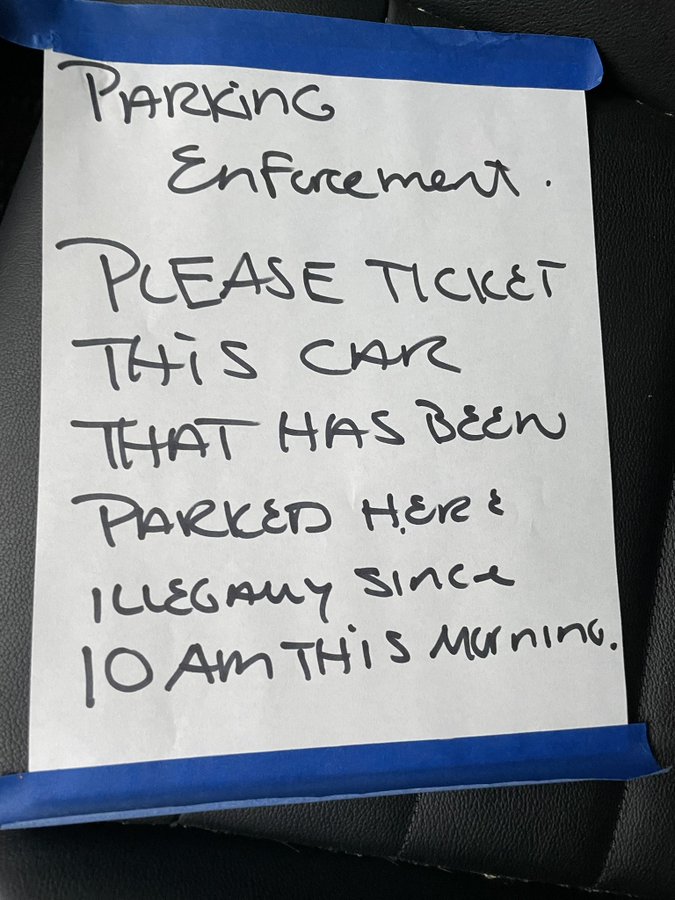 PARKING
Enforcement.
PLEASE TICKET
THIS CAR
THAT HAS BEEN
PARKED HERE
ILLEGALLY SINCE
10 AM THIS MORNING.